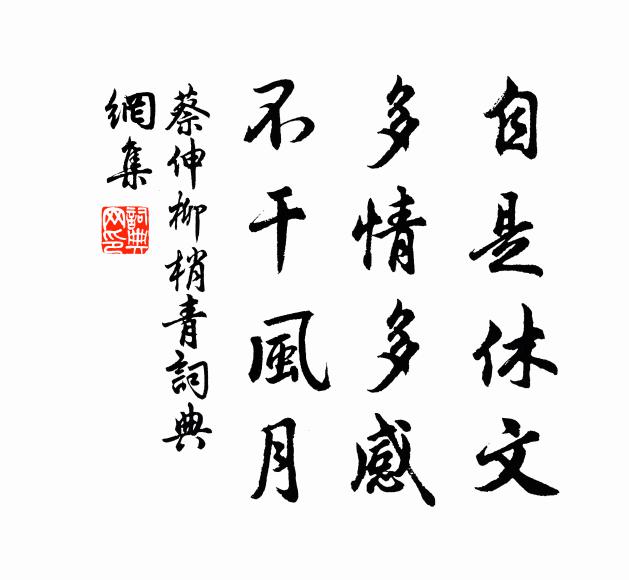 自是休文
多情多感
不干風月
蔡伸柳梢青詞典
網集
詞典
网印